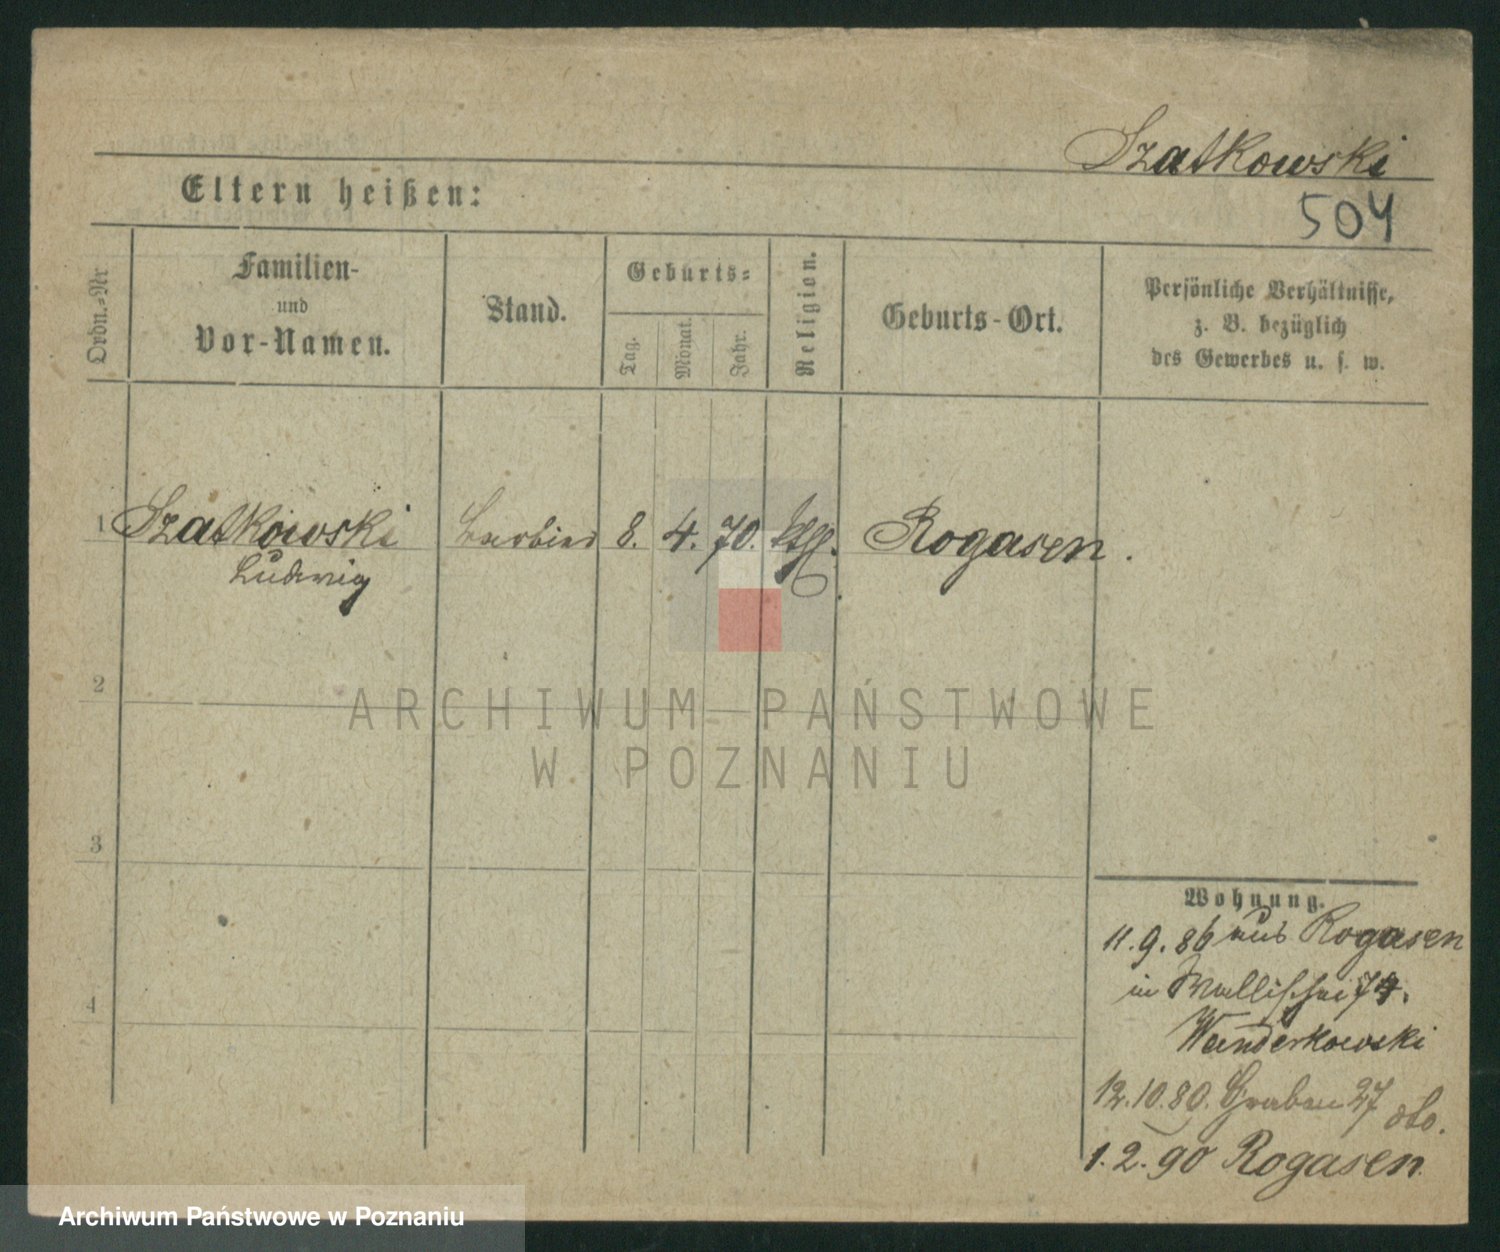 Szatkowski
504
Eltern heißen:
Ordn.=Nr
Familien-
und
Vor-Namen.
Stand.
Geburts=
Tag.
Monat.
Jahr.
Religion.
Geburts-Ort.
Persönliche Verhältnisse,
z. B. bezüglich
des Gewerbes u. s. w.
1 Szatkowski Barbier 8. 4. 70. kth. Rogasen.
Ludwig
2
3
4
Wohnung.
11.9.86 aus Rogasen
in Wallischei 74.
Wanderkowski
12.10.89. Graben 27
1.2.90 Rogasen
ARCHIWUM PAŃSTWOWE
W POZNANIU
Archiwum Państwowe w Poznaniu